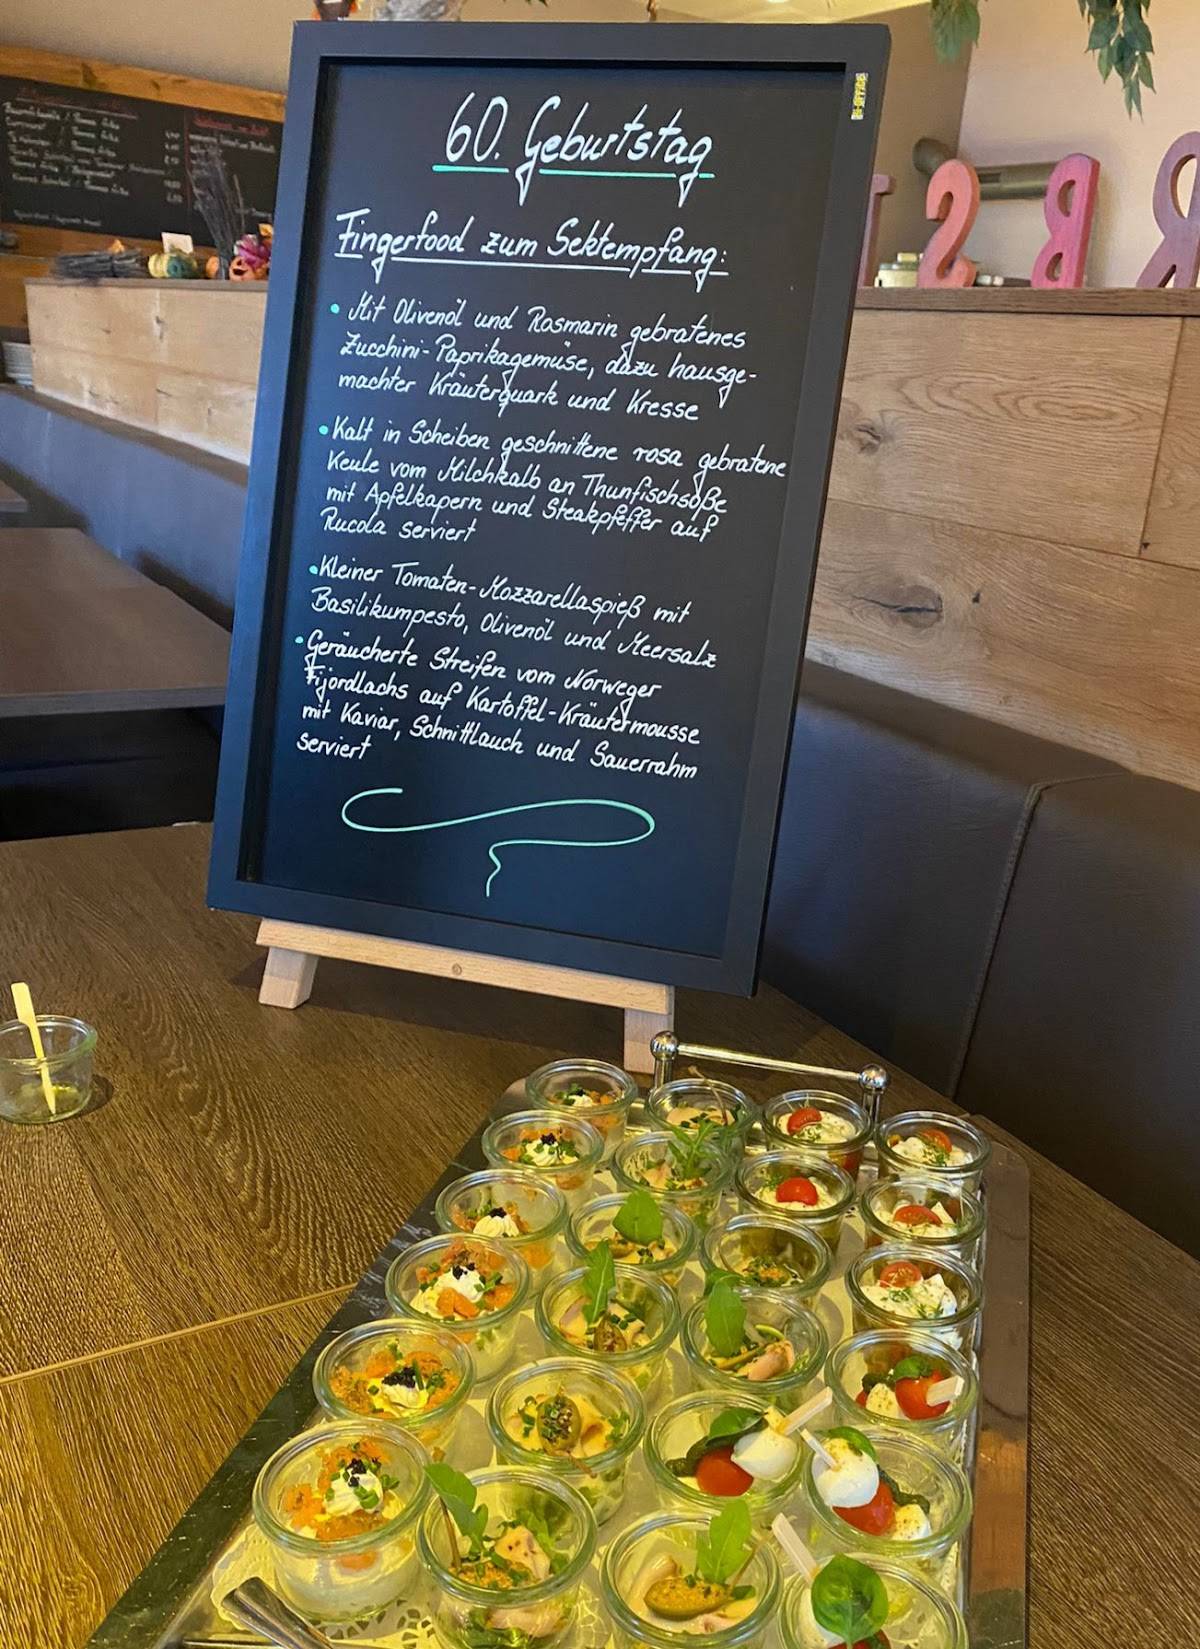 60. Geburtstag
Fingerfood zum Sektempfang:
• Mit Olivenöl und Rosmarin gebratenes
Zucchini-Paprikagemüse, dazu hausge-
machter Kräuterquark und Kresse
• Kalt in Scheiben geschnittene rosa gebratene
Keule vom Milchkalb an Thunfischsoße
mit Apfelkapern und Steakpfeffer auf
Rucola serviert
• Kleiner Tomaten-Mozzarellaspieß mit
Basilikumpesto, Olivenöl und Meersalz
• Geräucherte Streifen vom Norweger
Fijordlachs auf Kartoffel-Kräutermousse
mit Kaviar, Schnittlauch und Sauerrahm
serviert